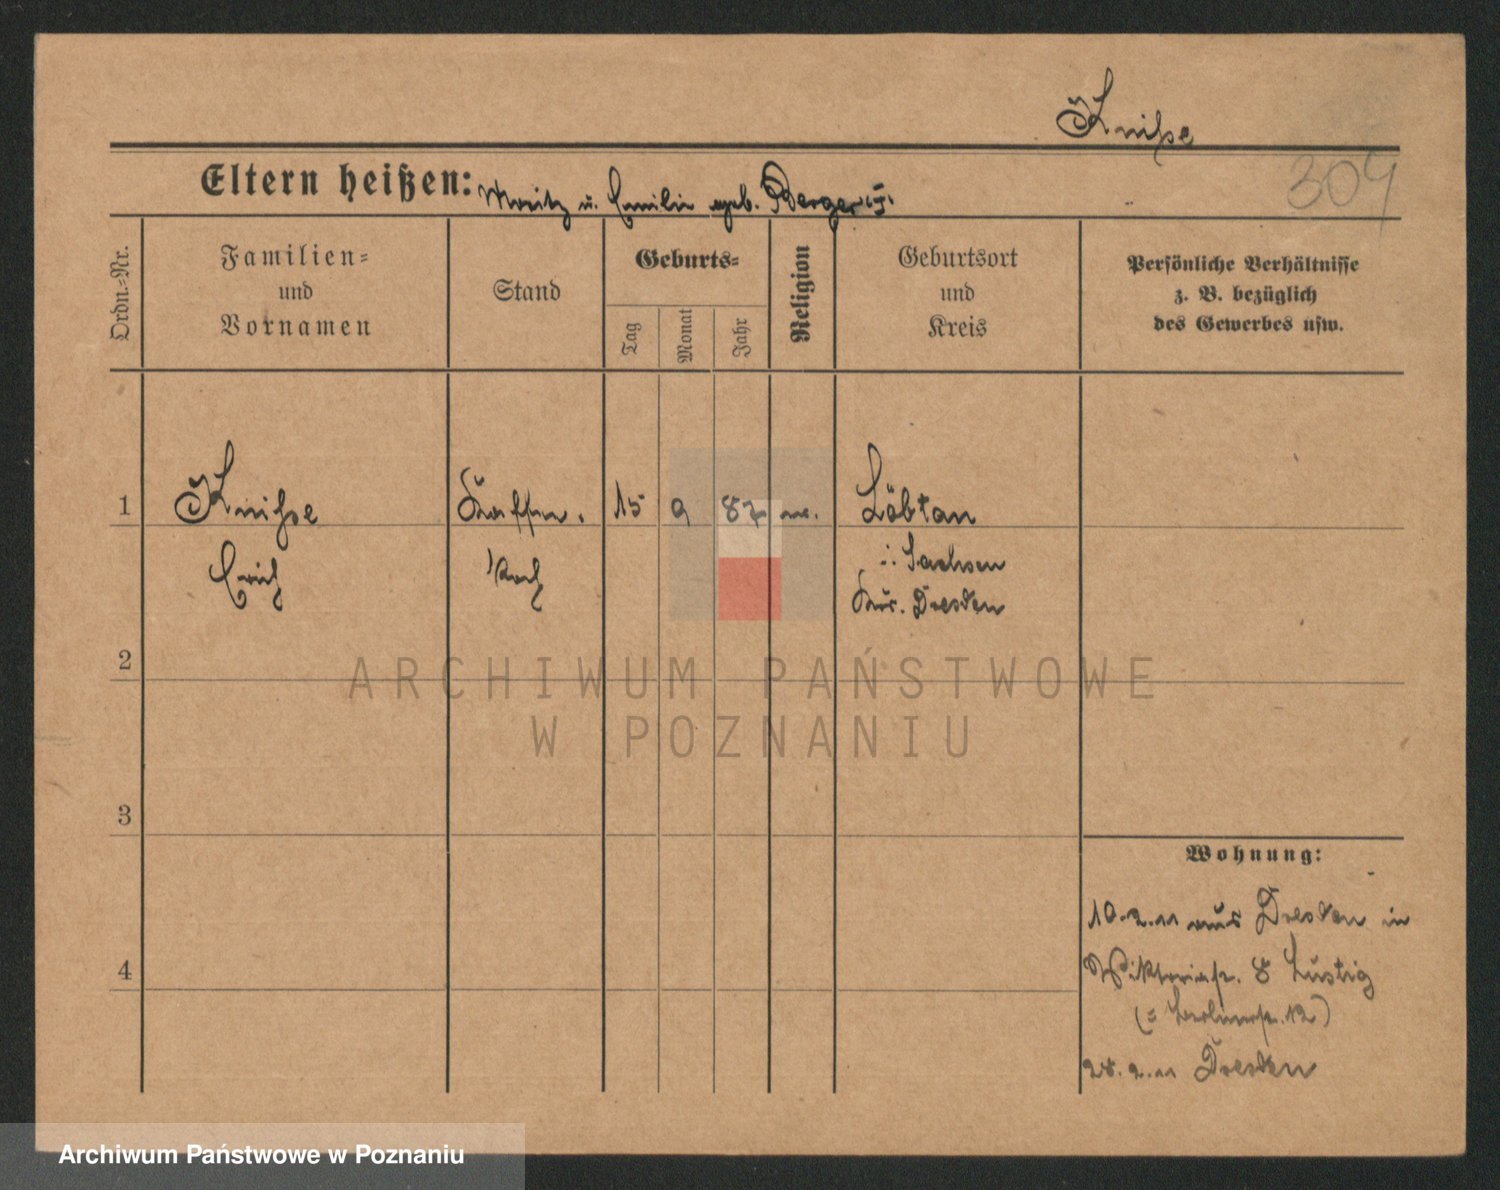 Knihse
304
Eltern heißen: Moritz u. Emilie geb. Berger
Ordn.=Nr.
Familien=
und
Vornamen
Stand
Geburts=
Tag
Monat
Jahr
Religion
Geburtsort
und
Kreis
Persönliche Verhältnisse
z. B. bezüglich
des Gewerbes usw.
1
Knihse
15
9
87
Löbtau
i. Sachsen
Erich
Koch
Krs. Dresden
2
ARCHIWUM PAŃSTWOWE
W POZNANIU
3
Wohnung:
10.2.11 aus Dresden in
4
Viktoriastr. 8 Lustig
(= Berlinerstr. 12)
28.2.11 Dresden
Archiwum Państwowe w Poznaniu